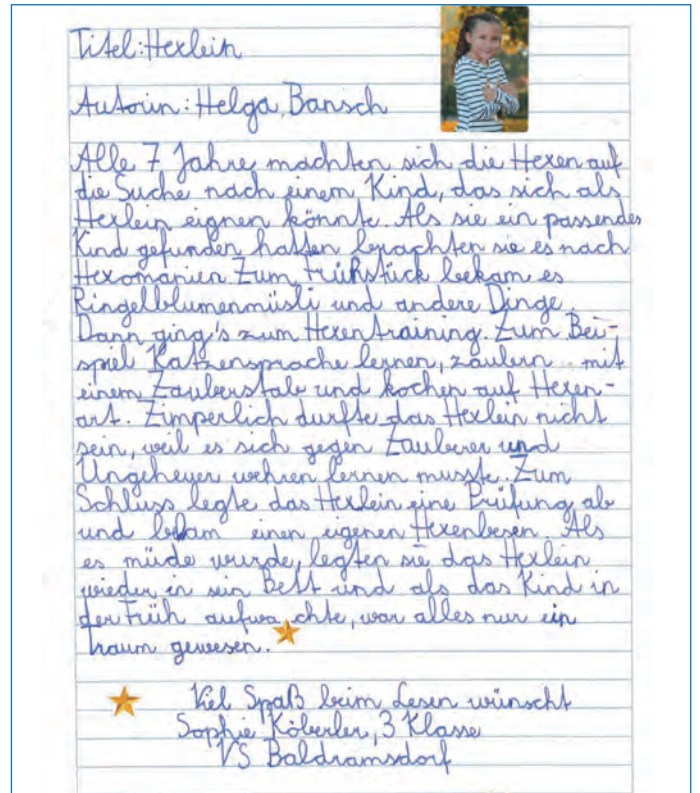 Titel: Hexlein
Autorin: Helga Bansch
Alle 7 Jahre machten sich die Hexen auf
die Suche nach einem Kind, das sich als
Hexlein eignen könnte. Als sie ein passendes
Kind gefunden hatten brachten sie es nach
Hexomanien. Zum Frühstück bekam es
Ringelblumenmüsli und andere Dinge.
Dann ging's zum Hexentraining. Zum Bei-
spiel Katzensprache lernen, zaubern mit
einem Zauberstab und kochen auf Hexen-
art. Zimperlich durfte das Hexlein nicht
sein, weil es sich gegen Zauberer und
Ungeheuer wehren lernen musste. Zum
Schluss legte das Hexlein eine Prüfung ab
und bekam einen eigenen Hexenbesen. Als
es müde wurde, legten sie das Hexlein
wieder in sein Bett und als das Kind in
der Früh aufwachte, war alles nur ein
Traum gewesen.
Viel Spaß beim Lesen wünscht
Sophie Köberler, 3 Klasse
VS Baldramsdorf